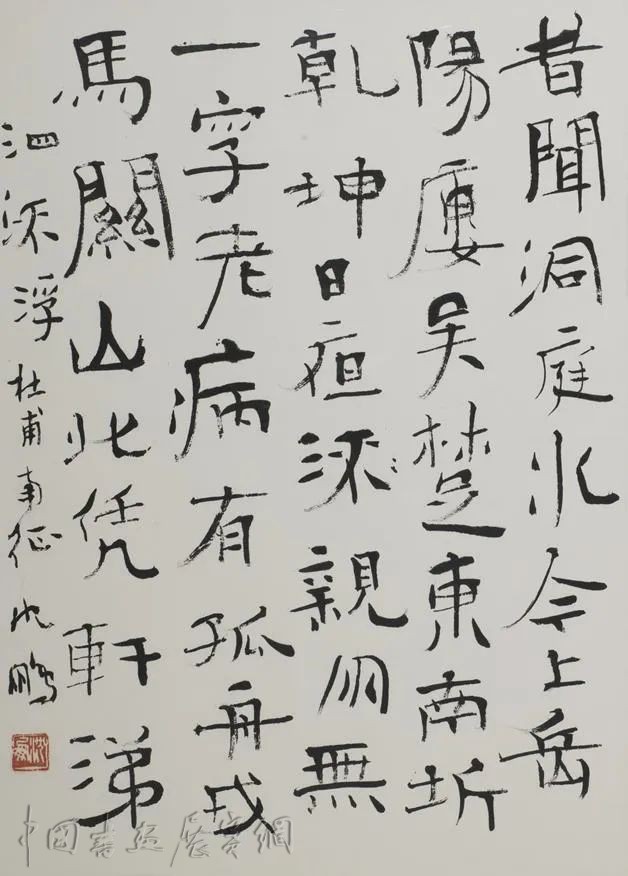 昔聞洞庭水今上岳
陽廔吳楚東南坼
乾坤日夜流親朋無
一字老病有孤舟戎
馬關山北凭軒涕
泗流浮 杜甫南征 沈鵬
沈鵬
中國書法展賽網